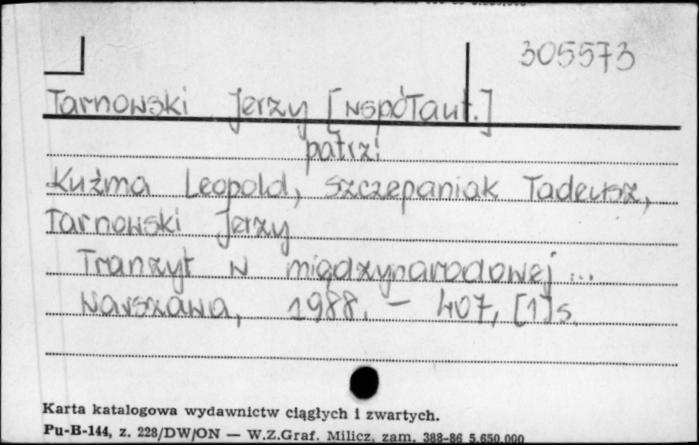 305573
Tarnowski Jerzy [współaut.]
patrz:
Kuźma Leopold, Szczepaniak Tadeusz,
Tarnowski Jerzy
Tranzyt w międzynarodowej ...
Warszawa, 1988. – 407, [1] s.
Karta katalogowa wydawnictw ciągłych i zwartych.
Pu-B-144, z. 228/DW/ON — W.Z.Graf. Milicz, zam. 388-86 5.650.000